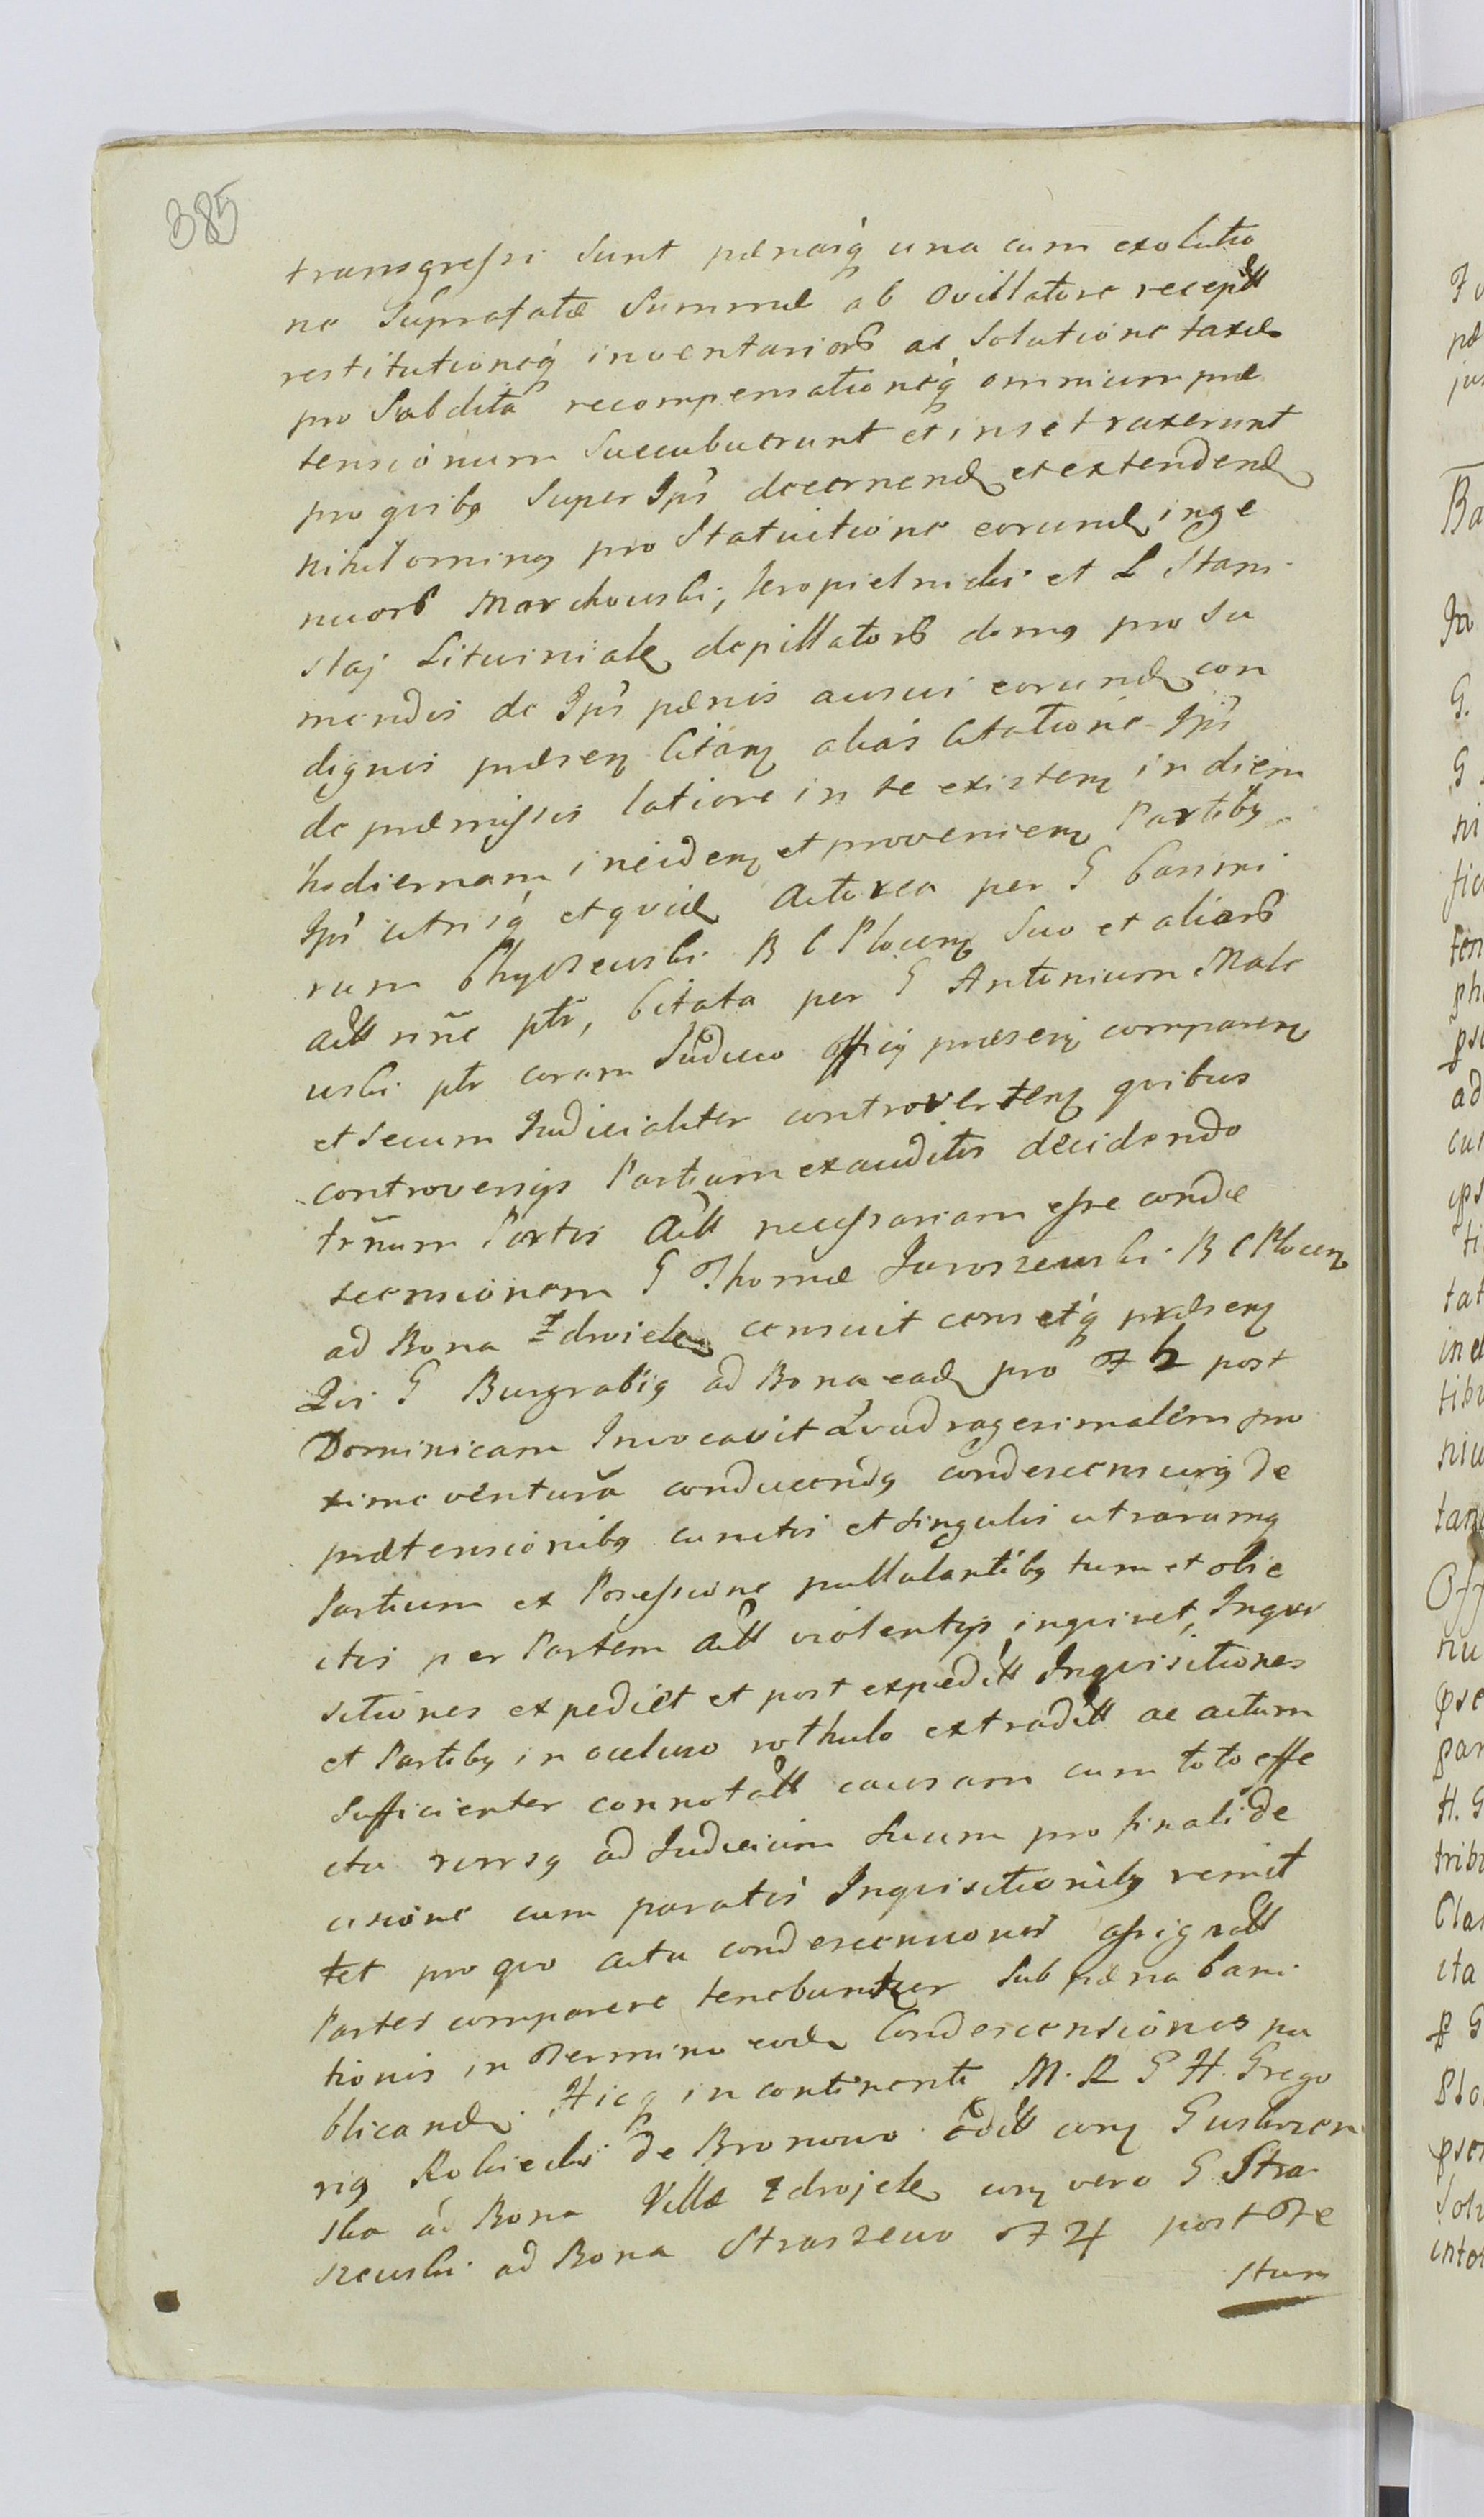 385
transgressi sunt pænasq una cum exolutio
ne supratatæ summæ ab Ovillatore recept
restitutioneq inventariorb ac solutione taxæ
pro subdita recompensationeq omnium præ
tensionum succubuerunt et in se traxerunt
pro quibq super Ipś decernend et extendend
nihilominq pro statuitione eorund inge
nuorb Marchowski, et L Stani
slai depillatorb domq pro su
mendis de Ipś pænis ausui eorund con
dignis præsen Citan alias Citatione Ipś
de præmissis latiore in se existen in diem
hodiernam inciden et provenien Partibq
Ipś utrisq et quid Actorea per G Casimi
rum B C Plocen suo et aliorb
Act nñe ptr, Citata per G Antonium Male
wski ptr coram Judicio Officij præsen comparen
et secum Judicialiter controverten quibus
controversijs Partium exauditis decidendo
trñum Partis Act necessariam esse conde
scensionem G Thomæ Jaroszewski B C Plocen
ad Bona Zdroiek censuit censetq præsen
Qui G Burgrabiq ad Bona ead pro F ♄ post
Dominicam Invocavit Quadragesimalem pro
xime venturā conducendq condescensurq de
prætensionibq cunctis et singulis utrarumq
Partium ex Possessione pullulantibq tum et obie
ctis per Partem Act violentijs inquiret, Inqui
sitiones expediet et post expedit Inquisitiones
et Partibq in occluso rothulo extradit ac actum
sufficienter connotat causam cum toto effe
ctu rursq ad Judicium suum pro finali de
cisione cum paratis Inquisitionibq remit
tet pro quo actu condescensionis assignat
Partes comparere tenebuntur sub pæna bani
tionis in Termino eod Condescensionis pu
blicand. Hicq in continenti M. R G H. Grego
riq Rokicki de Bronowo
ska ad Bona Villæ Zdrojek vero G Stra
szewski ad Bona Straszewo F ♃ post Fe
stum